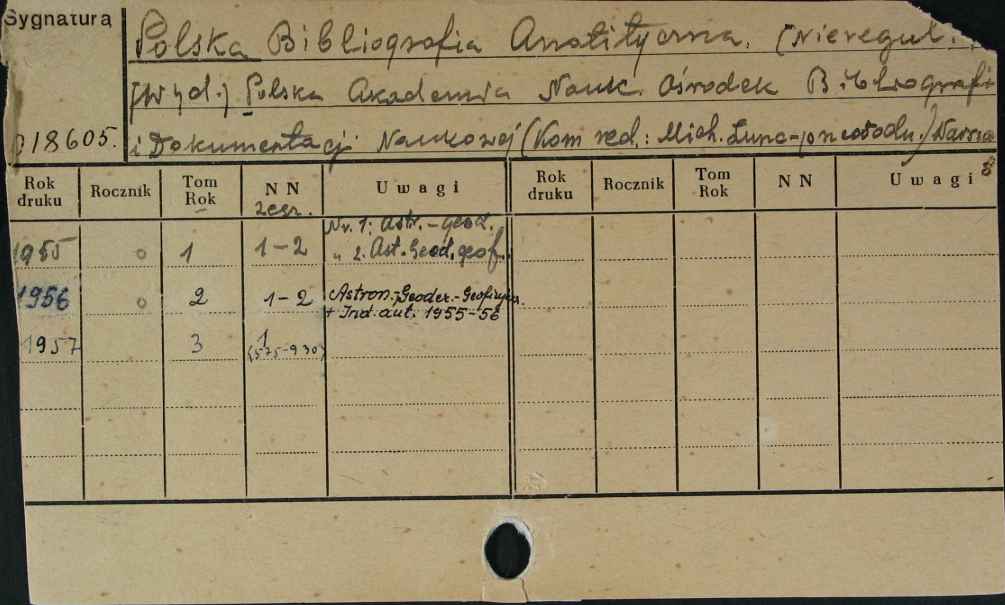 Sygnatura
Polska Bibliografia Analityczna. (Nieregul.
[Wyd.] Polska Akademia Nauk. Ośrodek Bibliografi
018605.
i Dokumentacji Naukowej (Kom red.: Mich. Warsza
Rok druku Rocznik Tom Rok NN zesz. Uwagi Rok druku Rocznik Tom Rok NN Uwagi
Nr. 1: Astr.-geod.
1955 o 1 1-2 „ 2. Ast. Geod. geof.
1956 o 2 1-2 Astron.-Geodez.-Geofizyka
+ Ind. aut. 1955-56
1957 3 1
(575-930)